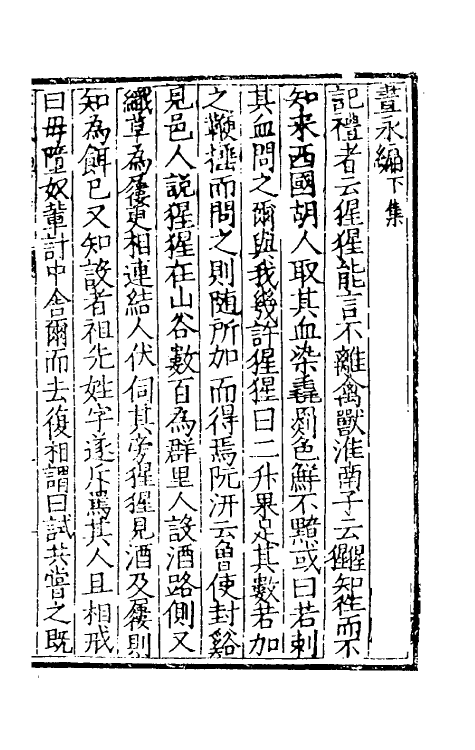 晝永編下集
記禮者云猩猩能言不離禽獸淮南子云猩猩知往而不
知来西國胡人取其血染毳罽色鮮不黯或曰若刺
其血問之爾與我幾許猩猩曰二升果足其數若加
之鞭捶而問之則随所加而得焉阮汧云曾使封谿
見邑人説猩猩在山谷數百為群里人設酒路側又
織草為屨更相連結人伏伺其旁猩猩見酒及屨則
知為餌已又知設者祖先姓字遂斥罵其人且相戒
曰毋墮奴輩計中舍爾而去復相謂曰試共嘗之既